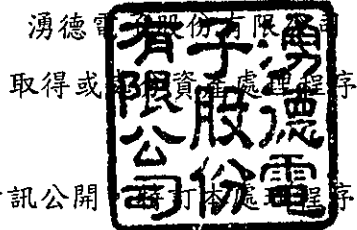 湧德電子股份有限公司
取得或處分資產處理程序
訊公開,特訂本處理程序
湧德電子股份有限公司